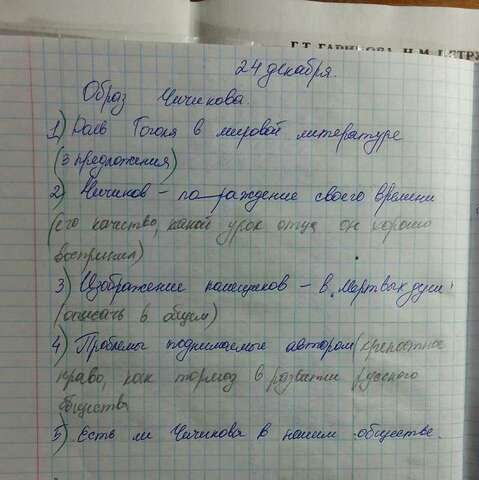 Г.Т. ГАРИПОВА, Н.М. ПЕТРУ
24 декабря.
Образ Чичикова.
1) Роль Гоголя в мировой литературе
(3 предложения)
2) Чичиков – порождение своего времени
(его качество, какой урок отца он хорошо
воспринял)
3) Изображение помещиков – в „Мертвых душ"
(описать в общем)
4) Проблемы поднимаемые автором (крепостное
право, как тормоз в развитии русского
общества
5) Есть ли Чичикова в нашем обществе.